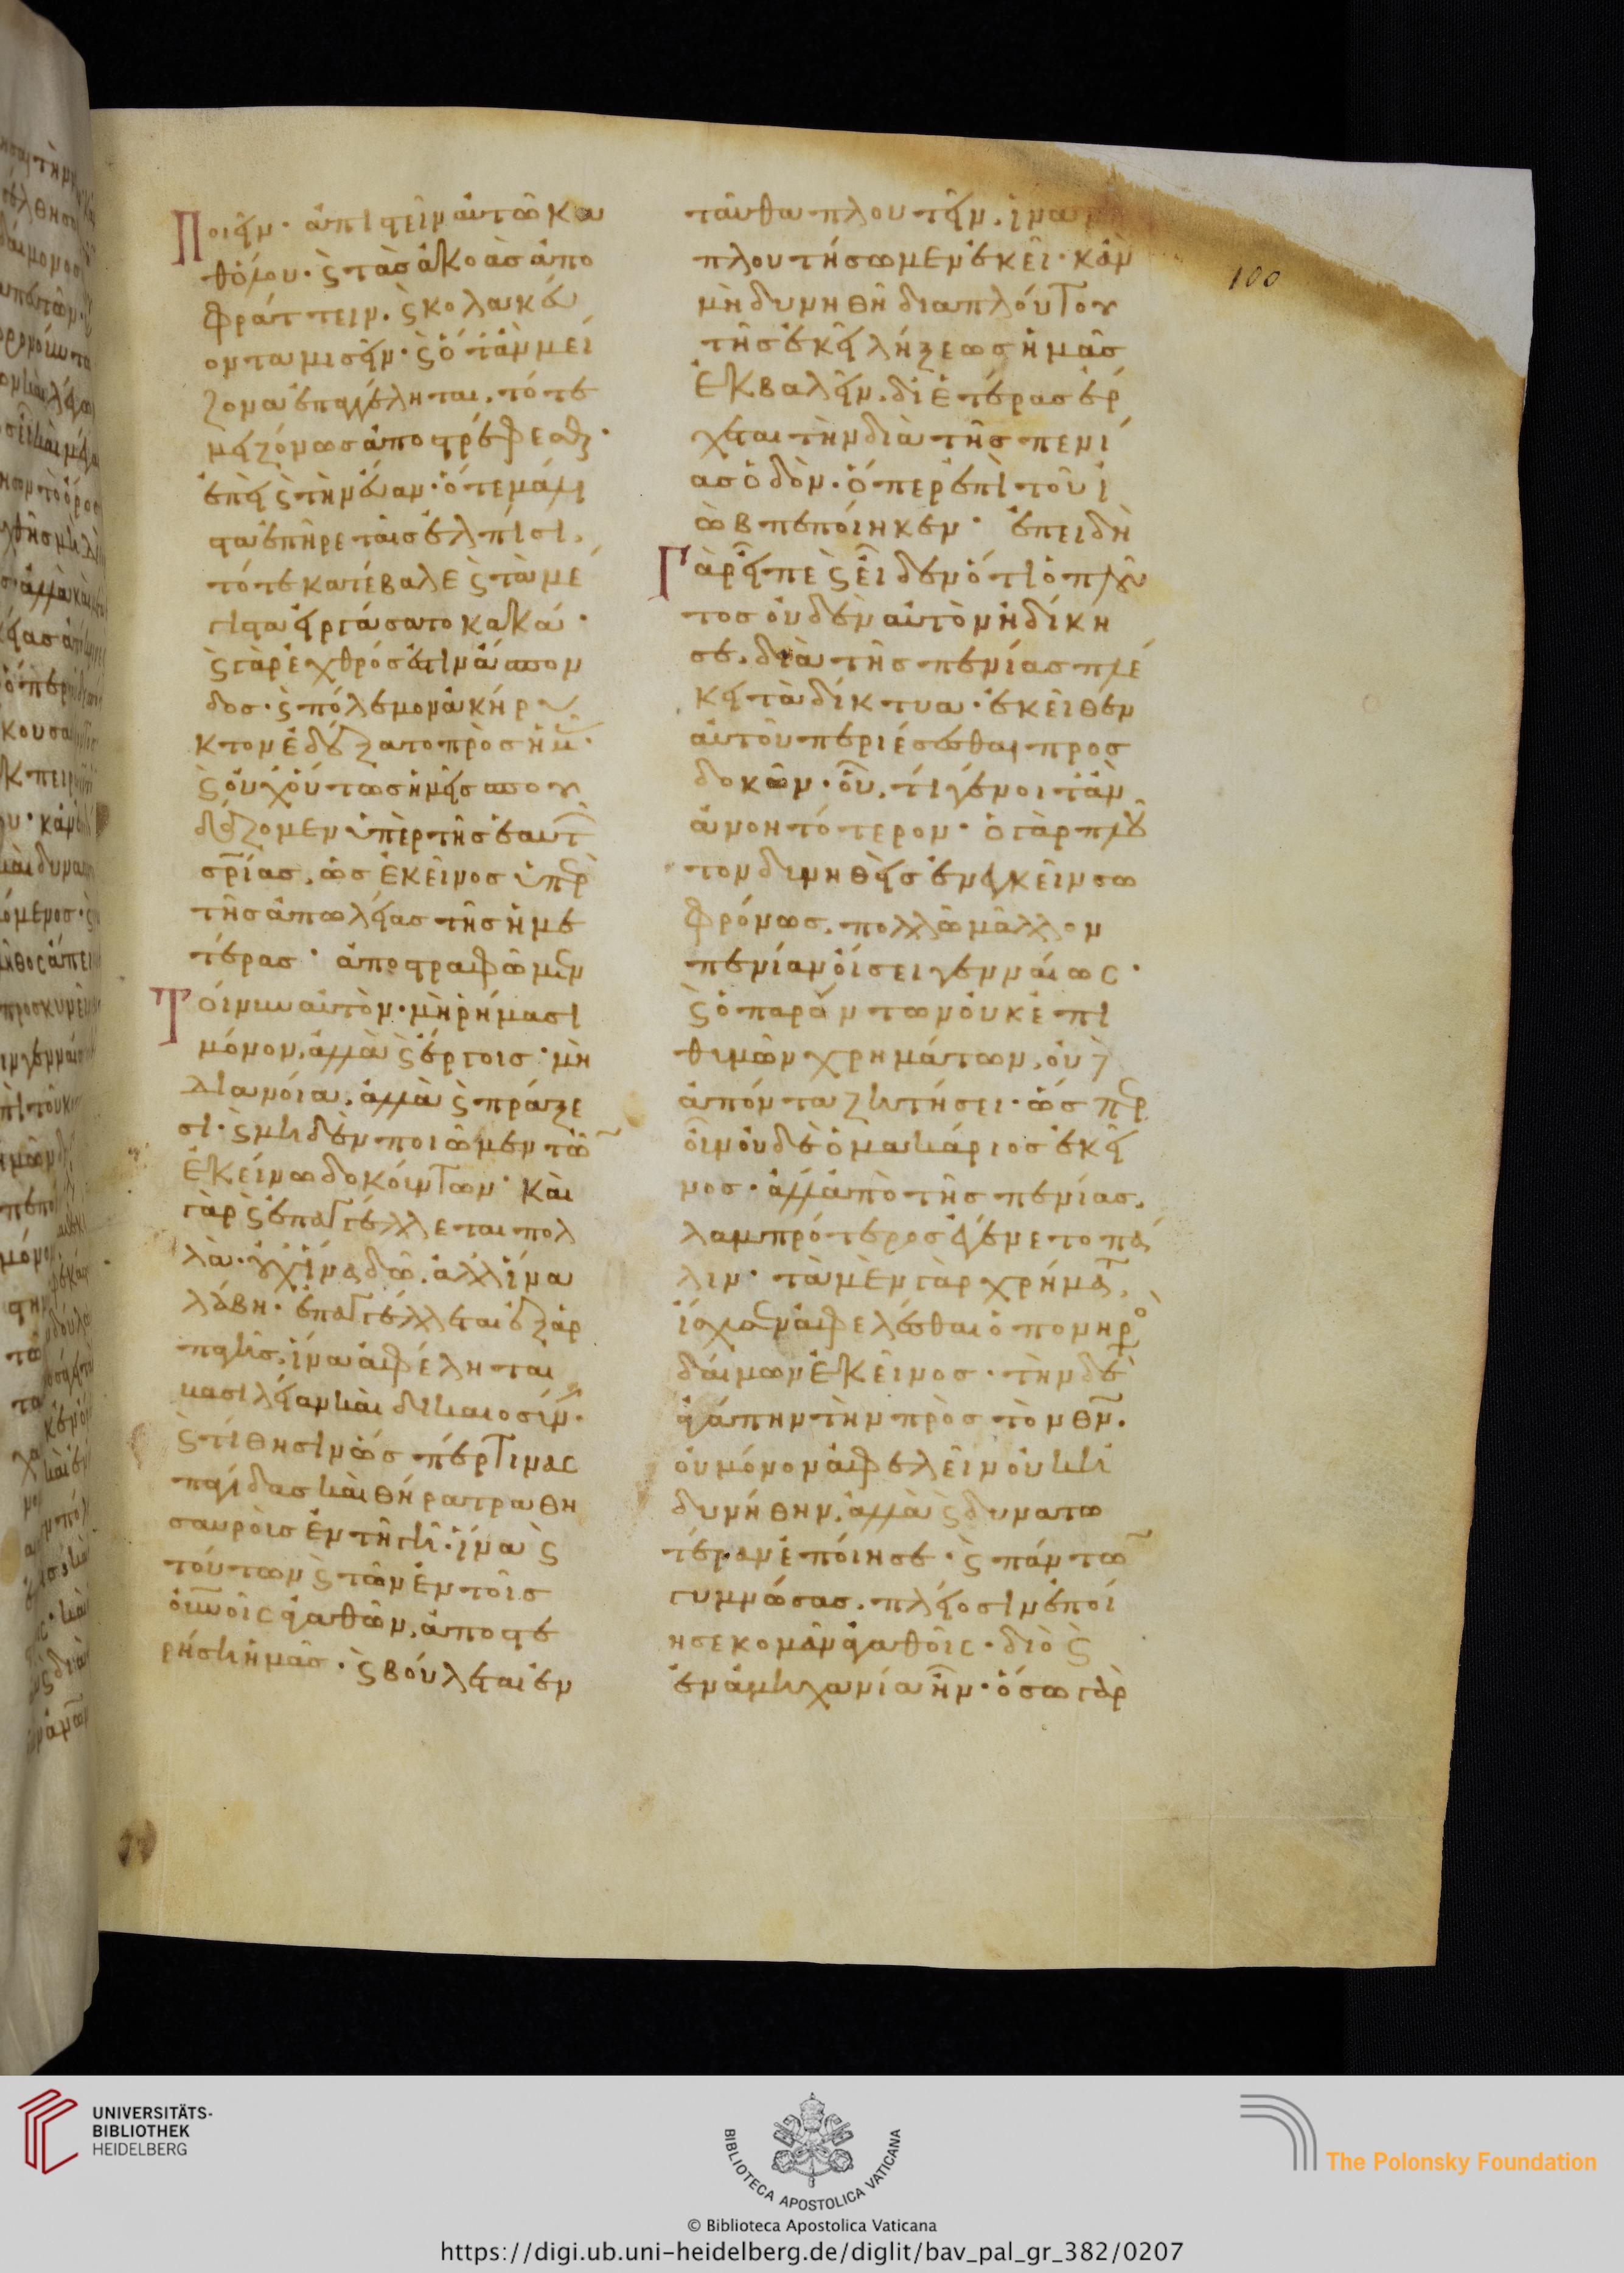 Ποιεῖν· ἀπιστεῖν αὐτῶ κα
θόλου· ϗ τὰς ἀκοὰς ἀπο
φράττειν. ϗ κολακεύ
οντα μισεῖν· ϗ ὅτὰν μεί
ζονα ἐπαγγέλληται, τότε
μειζόνως ἀποστρέφεσθαι·
ἐπεὶ ϗ τὴν εὔαν· ὅτε μάλι
στα ἐπῆρε ταῖς ἐλπίσι,
τότε κατέβαλε ϗ τὰ μέ
γιστα εἰργάσατο κακά·
ϗ γὰρ ἐχθρός ἐστιν άσπον
δος· ϗ πόλεμον ἀκήρυ
κτον ἐδέξατο πρὸς ἡμ·
ϗ οὐχ οὕτως ἡμεῖς σπου
δάζομεν ὑπὲρ τῆς ἑαυτ
σρίας, ὡς ἐκεῖνος ὑπὲρ
τῆς ἀπωλείας τῆς ἡμε
τέρας· ἀποστραφῶμεν
Τοίνυν αὐτὸν· μὴ ῥήμασι
μόνον, ἀλλὰ ϗ έργοις· μὴ
διανοία, ἀλλὰ ϗ πράξε
σι· ϗ μηδὲν ποιῶμεν τῶ
ἐκείνω δοκούντων· καὶ
γὰρ ϗ ἐπαγγέλλεται πολ
λὰ· οὐχ ἵνα δῶ, ἀλλ ἵνα
λάβη· ἐπαγγέλλεται ἐξ ἁρ
παγῆς, ἵνα ἀφέληται
βασιλείαν καὶ δικαιοσύν·
ϗ τίθησιν ὥσπέρ τινας
παγίδας καὶ θήρατρα θη
σαυροὺς ἐν τῆ γῆ· ἵνα ϗ
τούτων ϗ τῶν ἐν τοῖς
οὐνοῖς ἀγαθῶν, ἀποστε
ρήση ἡμᾶς· ϗ βούλεται ἐν
ταῦθα πλουτεῖν, ἵνα μὴ
πλουτήσωμεν ἐκεῖ· κὰν
μὴ δυνηθῆ δια πλούτου
τῆς ἐκεῖ λήξεως ἡμᾶς
ἐκβαλεῖν, δι ἑτέρας έρ
χεται τὴν διὰ τῆς πενί
ας ὁδὸν· ὅπερ ἐπὶ τοῦ ἰ
ὼβ πεποίηκεν· ἐπειδὴ
Γὰρ εἶπε ϗ εἶδεν ότι ὁ πλοῦ
τος οὐδὲν αὐτὸν ἠδίκη
σε, διὰ τῆς πενίας πλέ
κει τὰ δίκτυα· ἐκεῖθεν
αὐτοῦ περιέσεσθαι προς
δοκῶν· οὗ, τί γένοιτ ἂν
ἀνοητότερον· ὁ γὰρ πλοῦ
τον δυνηθεὶς ἐνεγκεῖν σω
φρόνως, πολλῶ μᾶλλον
πενίαν οἴσει γενναίως·
ϗ ὁ παρόντων οὐκ ἐπι
θυμῶν χρημάτων, οὐδὲ
ἀπόντα ζητήσει· ὥσπερ
οῦν οὐδὲ ὁ μακάριος ἐκεῖ
νος· ἀλλ ἀπὸ τῆς πενίας,
λαμπρότερος ἐγένετο πά
λιν· τὰ μὲν γὰρ χρήματ,
ίσχυσεν ἀφελέσθαι ὁ πονηρὸ
δαίμων ἐκεῖνος· τὴν δὲ
ἀγάπην τὴν πρὸς τὸν θν·
οὐ μόνον ἀφελεῖν οὐκ ἠ
δυνήθην, ἀλλὰ ϗ δυνατω
τέραν ἐποίησε· ϗ πάντω
γυμνώσας, πλείοσιν ἐποί
ησε κομᾶν ἀγαθοῖς· διὸ ϗ
ἐν ἀμηχανία ἦν· ὅσω γὰρ
100
UNIVERSITÄTS-
BIBLIOTHEK
HEIDELBERG
BIBLIOTECA APOSTOLICA VATICANA
The Polonsky Foundation
© Biblioteca Apostolica Vaticana
https://digi.ub.uni-heidelberg.de/diglit/bav_pal_gr_382/0207